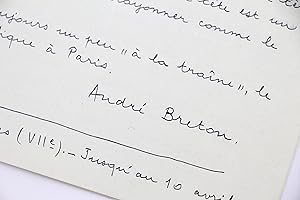 est un
rayonner comme le
toujours un peu "à la traîne", le
à Paris.
André Breton.
(VIIe). — Jusqu'au 10 avril